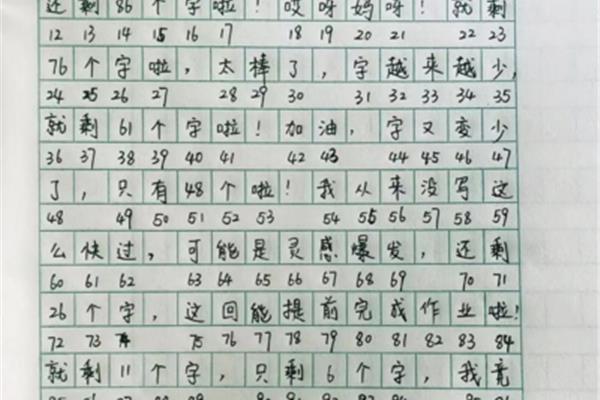 还剩86个字啦！哎呀妈呀！就剩
12 13 14 15 16 17 18 19 20 21 22 23
76个字啦，太棒了，字越来越少，
24 25 26 27 28 29 30 31 32 33 34 35
就剩61个字啦！加油，字又变少
36 37 38 39 40 41 42 43 44 45 46 47
了，只有48个啦！我从来没写这
48 49 50 51 52 53 54 55 56 57 58 59
么快过，可能是灵感爆发，还剩
60 61 62 63 64 65 66 67 68 69 70 71
26个字，这回能提前完成作业啦！
72 73 74 75 76 77 78 79 80 81 82 83 84
就剩11个字，只剩6个字，我竟